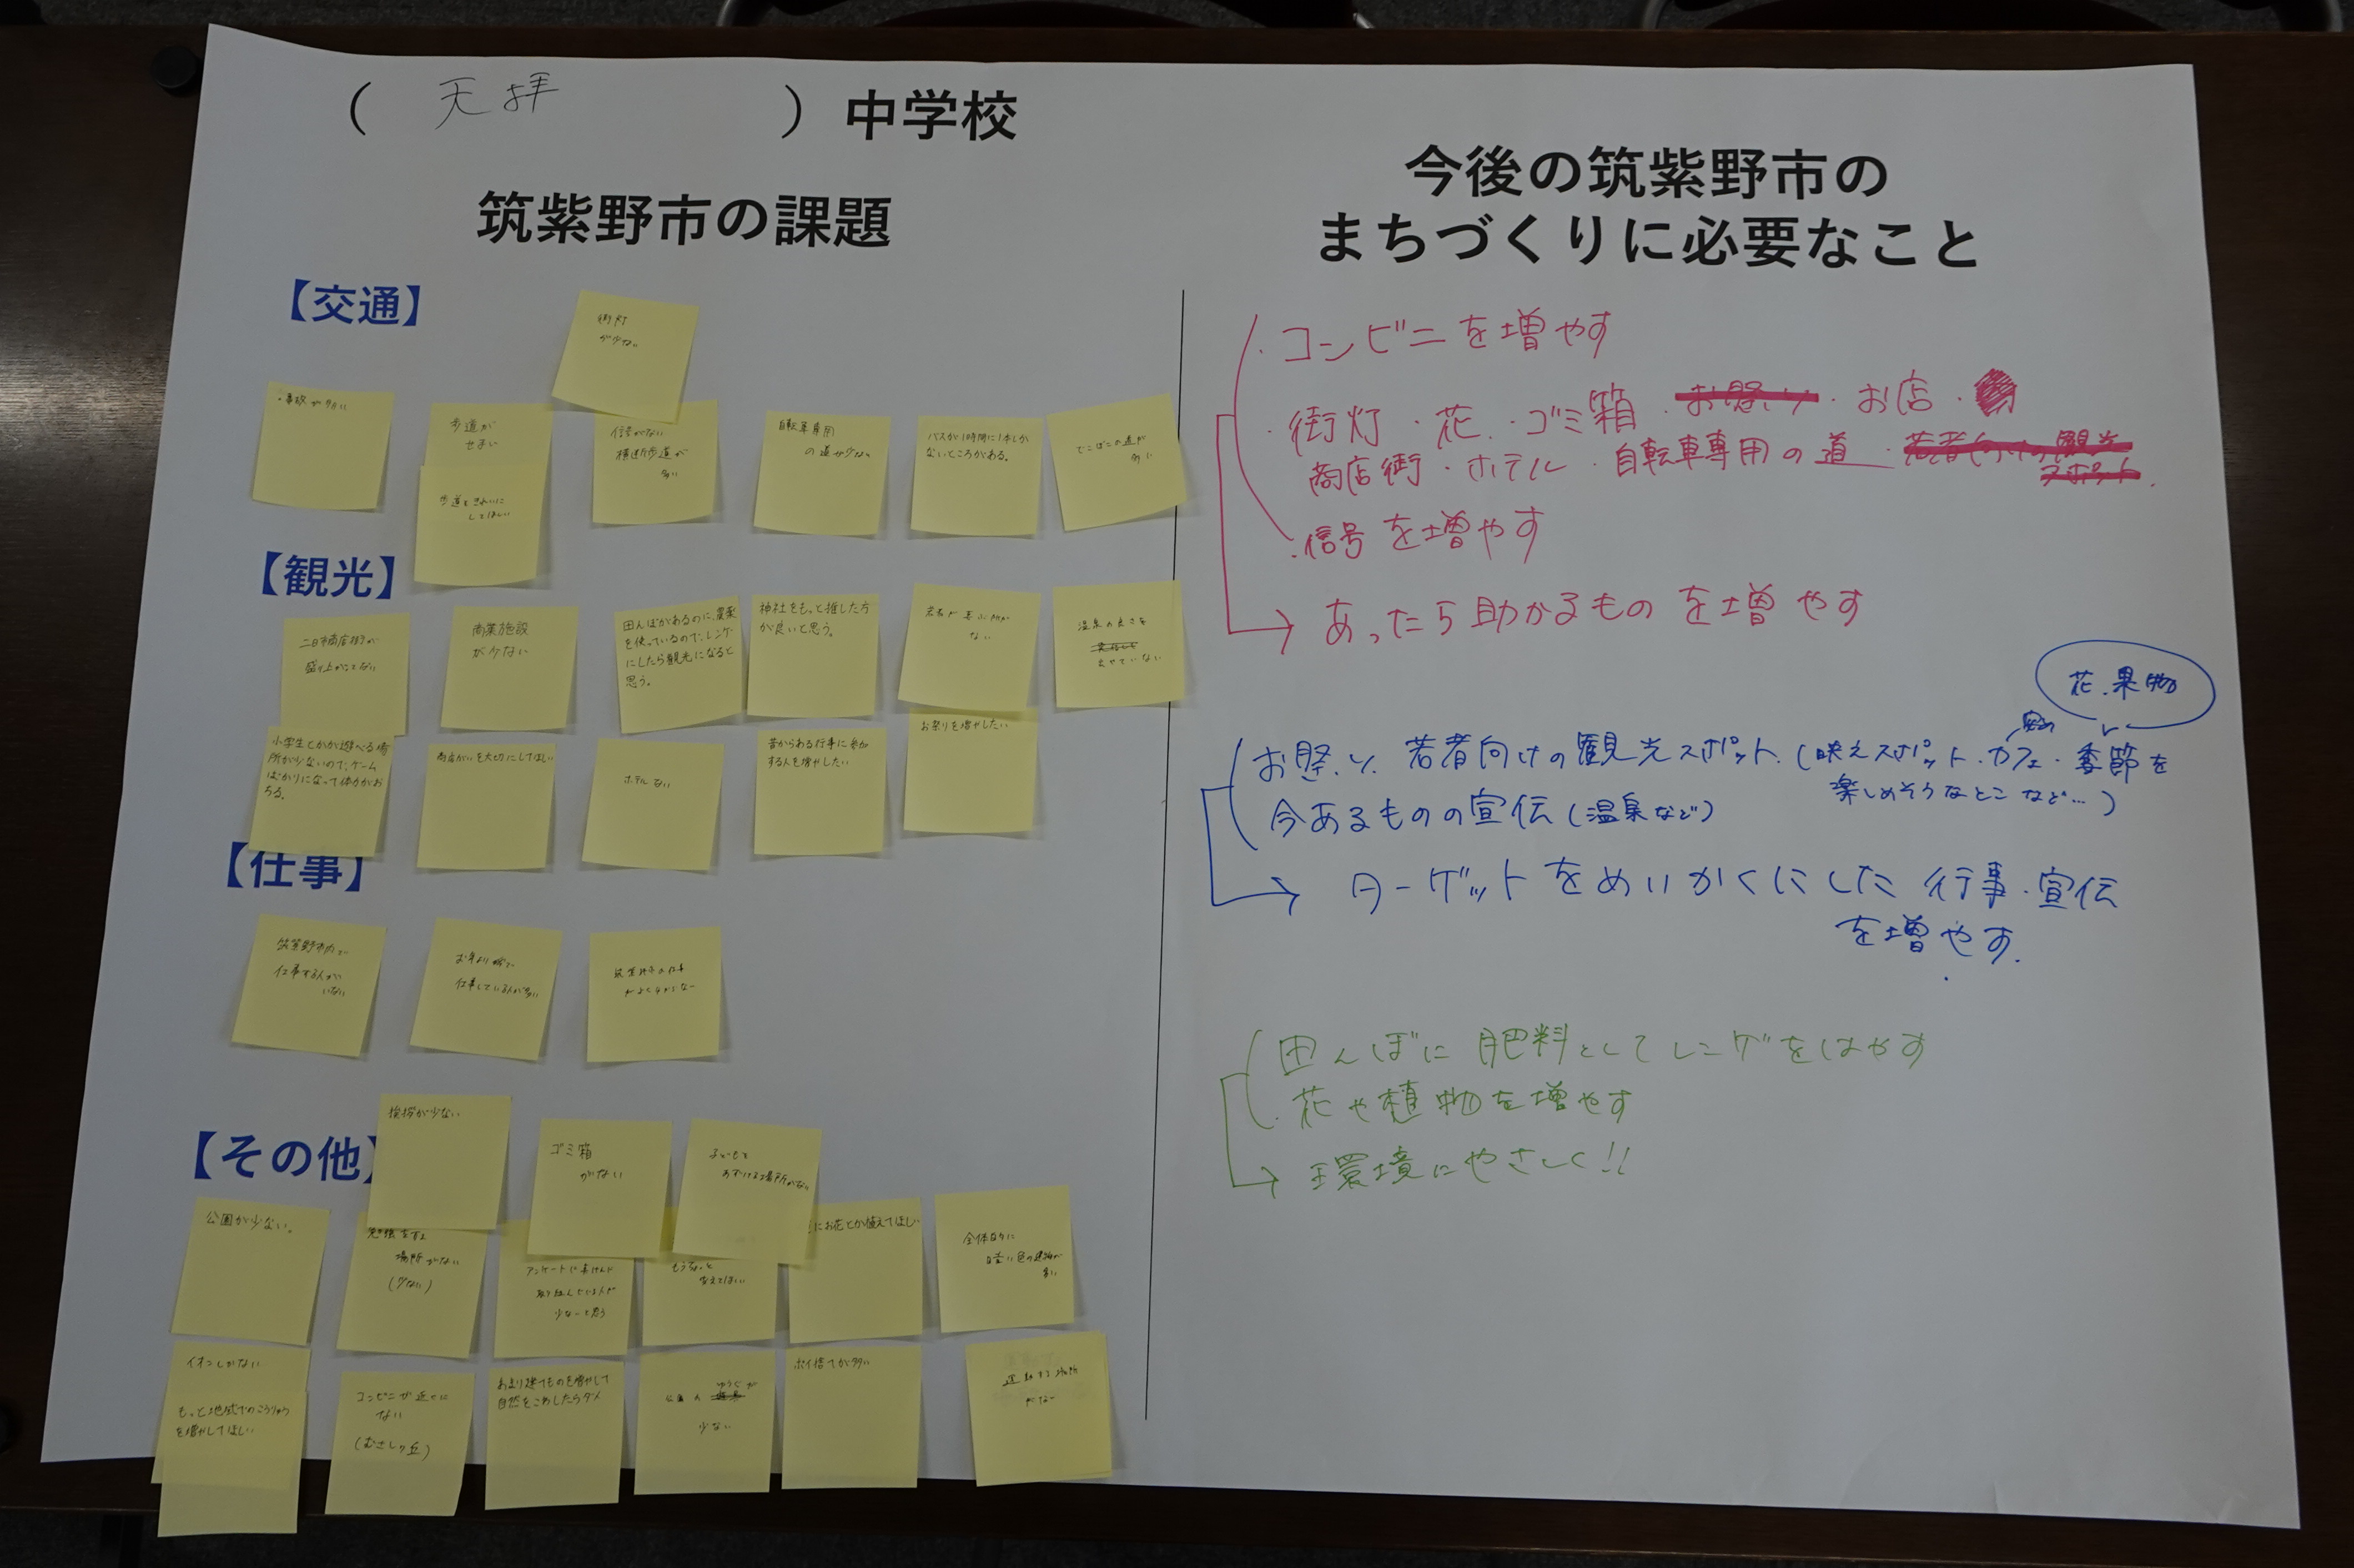 （ 天拝 ）中学校
筑紫野市の課題
【交通】
街灯
が少ない
・事故が多い
歩道が
せまい
歩道をきれいに
してほしい
信号がない
横断歩道が
多い
自転車専用
の道が少ない
バスが1時間に1本しか
ないところがある。
でこぼこの道が
多い
【観光】
二日市商店街が
盛り上がってない
商業施設
が少ない
田んぼがあるのに、農薬
を使っているので、レンゲ
にしたら観光になると
思う。
神社をもっと推した方
が良いと思う。
ない
温泉の良さを
いない
小学生とかが遊べる場
所が少ないので、ゲーム
ばかりになって体力がお
ちる。
商店がいを大切にしてほしい
ホテルない
昔からある行事に参加
する人を増やしたい
お祭りを増やしたい
【仕事】
筑紫野市内で
仕事する人が
いない
お年より
仕事している人が多い
筑紫野市の仕事
がよく分からない
【その他】
挨拶が少ない
ゴミ箱
がない
子どもを
あずける場所がない
公園が少ない。
勉強する
場所がない
(少ない)
アンケートに真けんに
取り組んでいる人が
少ないと思う
もうちょっと
ほしい
にお花とか植えてほしい
全体的に
暗い色の建物が
多い
イオンしかない
もっと地域でのこうりゅう
を増やしてほしい
コンビニが近くに
ない
(むさしヶ丘)
あまり建てものを増やして
自然をこわしたらダメ
公園の ゆうぐが
少ない
ポイ捨てが多い
運動する場所
がない
今後の筑紫野市の
まちづくりに必要なこと
・コンビニを増やす
・街灯・花・ゴミ箱・お祭り・お店・
商店街・ホテル・自転車専用の道・若者向けの観光
スポット
・信号を増やす
→ あったら助かるものを増やす
花、果物
お祭り、若者向けの観光スポット（映えスポット・カフェ・季節を
楽しめそうなとこなど…）
今あるものの宣伝（温泉など）
→ ターゲットをめいかくにした行事・宣伝
を増やす。
田んぼに肥料としてレンゲをはやす
花や植物を増やす
→ 環境にやさしく!!